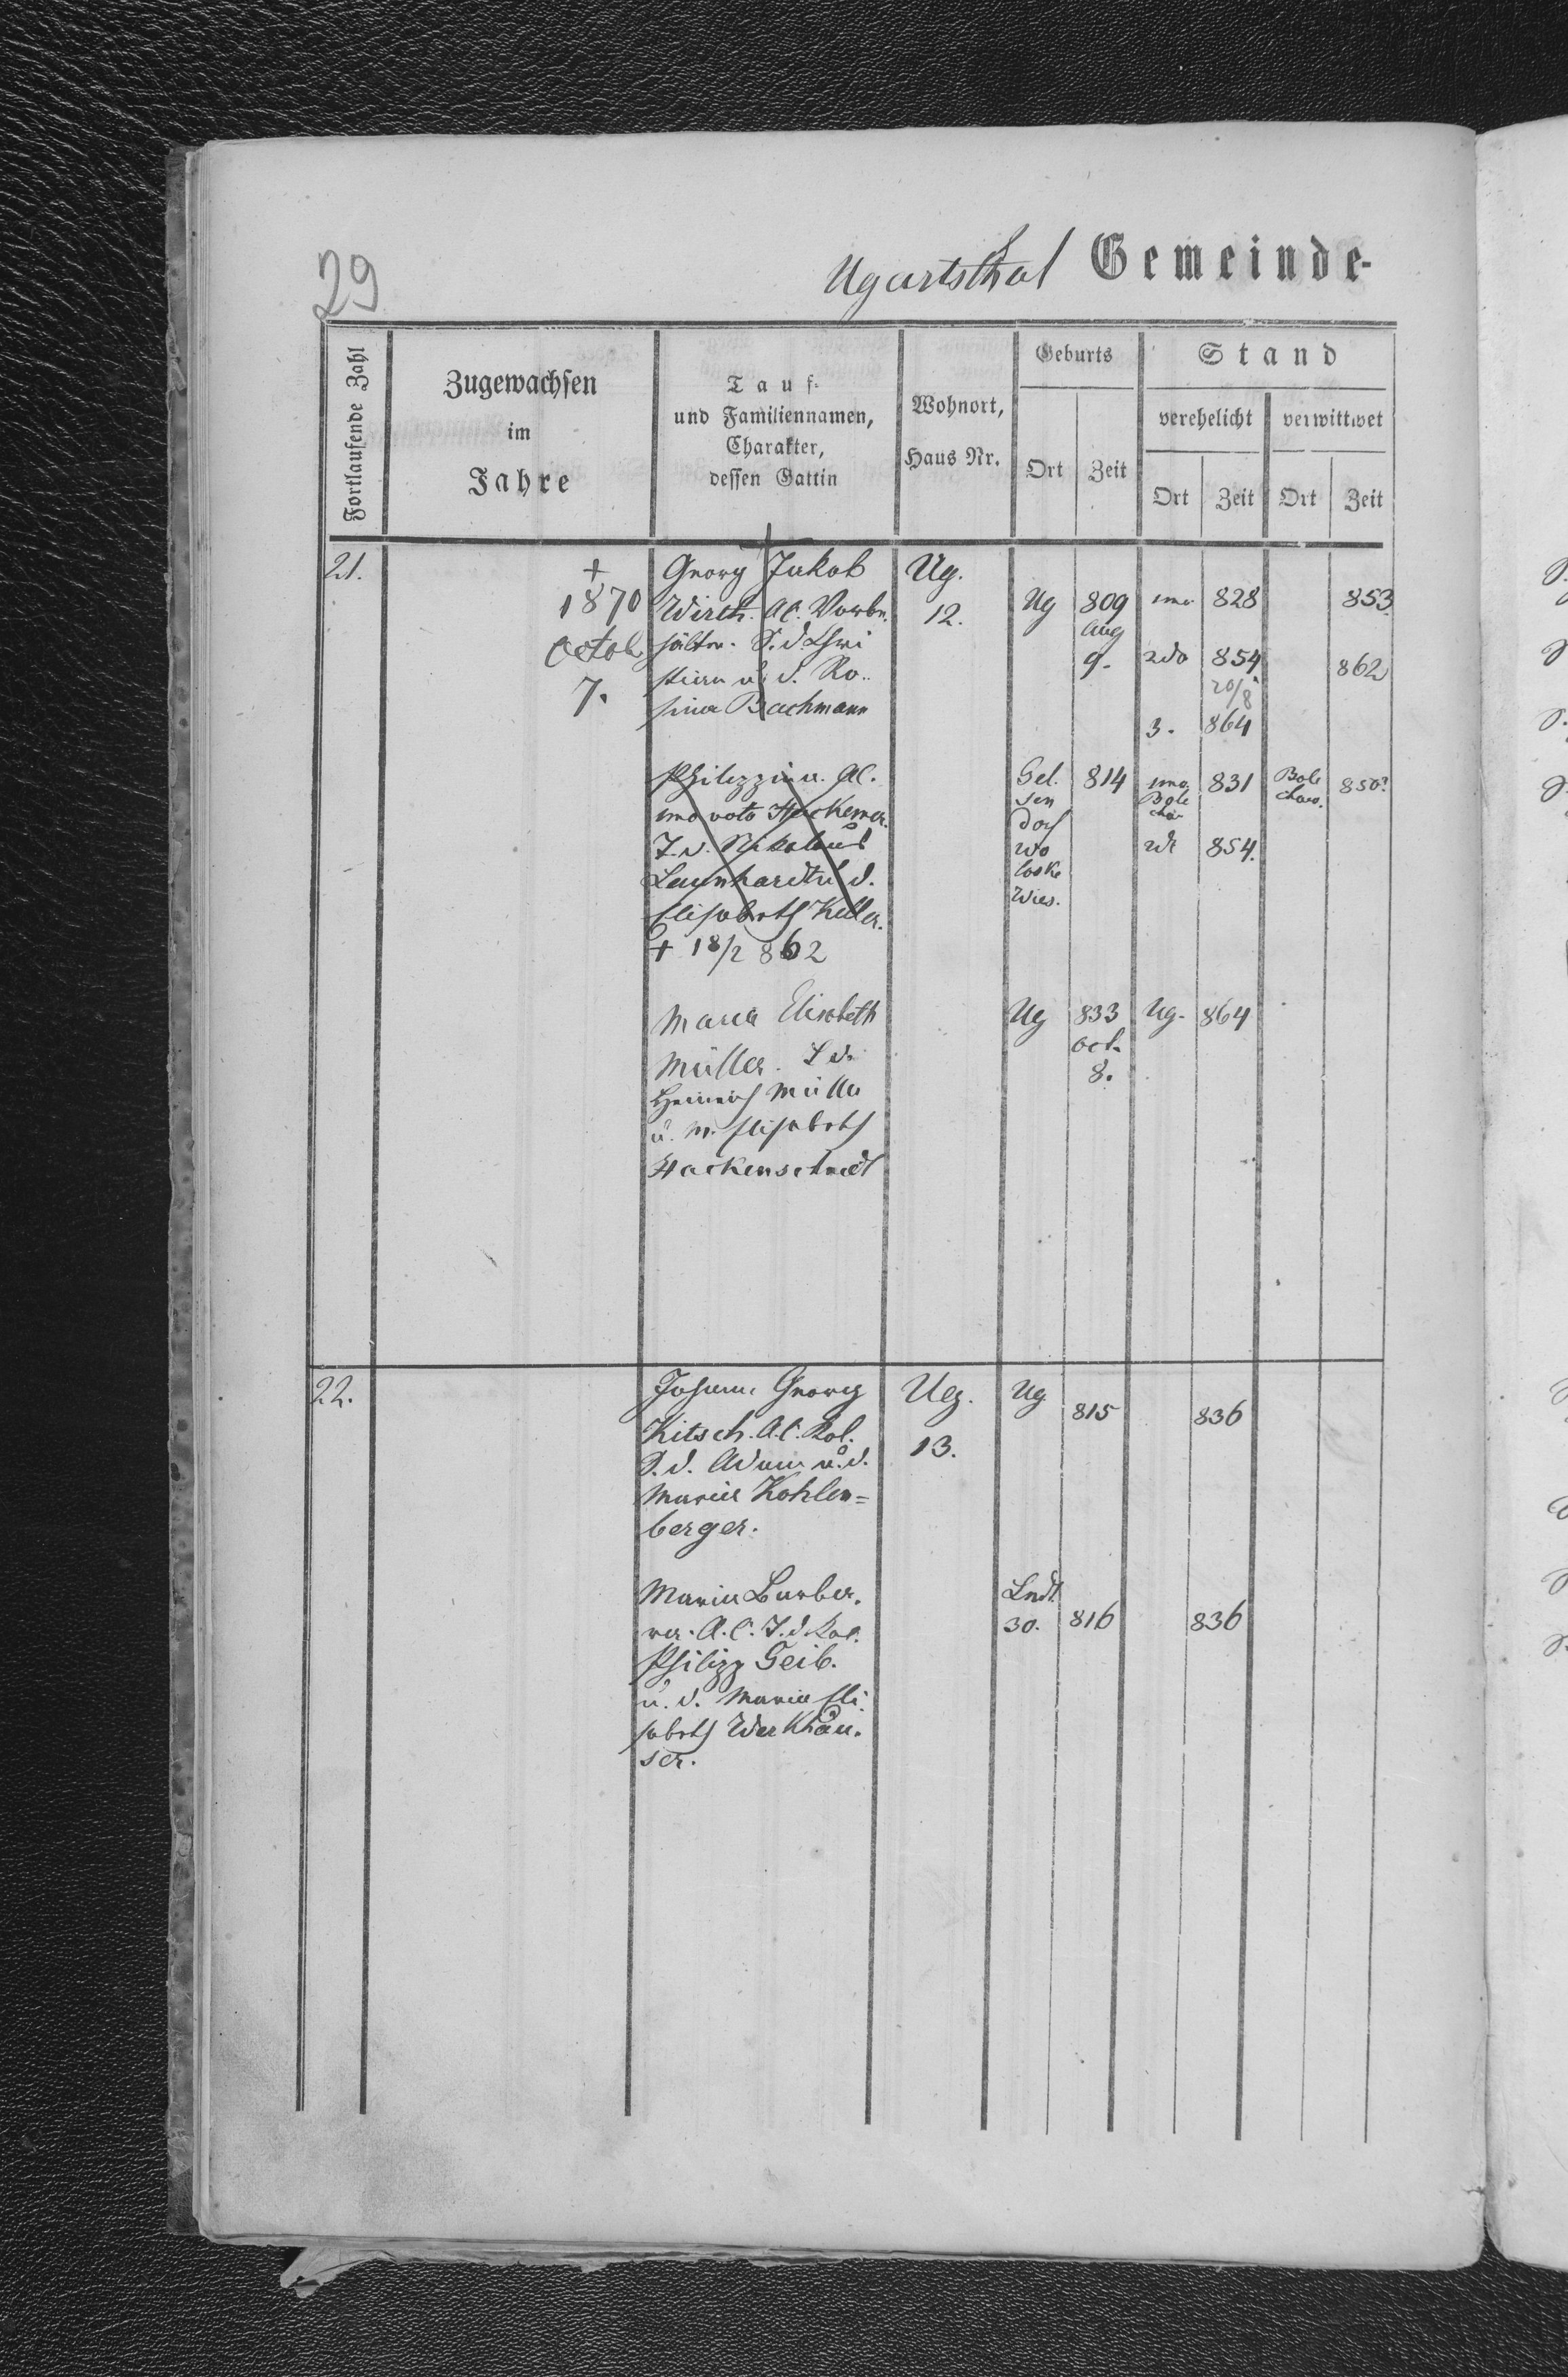 29
Ugartsthal Gemeinde-
Fortlaufende Zahl
Zugewachsen
im
Jahre
Tauf-
und Familiennamen,
Charakter,
dessen Gattin
Wohnort,
Haus Nr.
Geburts
Ort
Zeit
Stand
verehelicht
verwittwet
Ort
Zeit
Ort
Zeit
21.
+
1870
Octob
7.
Georg Jakob
Wirth. AC. Vorbe.
hälter. S. d. Chri
stian u. d. Ro-
sina Bachmann
Ug.
12.
Ug
809
Aug
9.
imo
828
853.
2do
854
20/8
862
3.
864
Philippina. AC.
imo voto
T. d. Nikolaus
Leonhardt u. d.
Elisabeth Keller.
+ 18/2 862
Gel.
sen
dorf
wo
loske
Wies.
814
imo
Bole
chow
831
Bole
chow.
850?
2do
854.
Maria Elisabeth
Müller. T. d.
Heinrich Müller
u. M. Elisabeth
Hackenschmidt
Ug
833
Oct.
8.
Ug.
864
22.
Johann Georg
Kitsch. A.C. Kol.
S. d. Adam u. d.
Maria Kohlen=
berger.
Ug.
13.
Ug
815
836
Maria Barba.
ra. A.C. T. d. Kol.
Philipp Geib.
u. d. Maria Eli
sabeth Werkhäu.
ser.
Lndt
30.
816
836